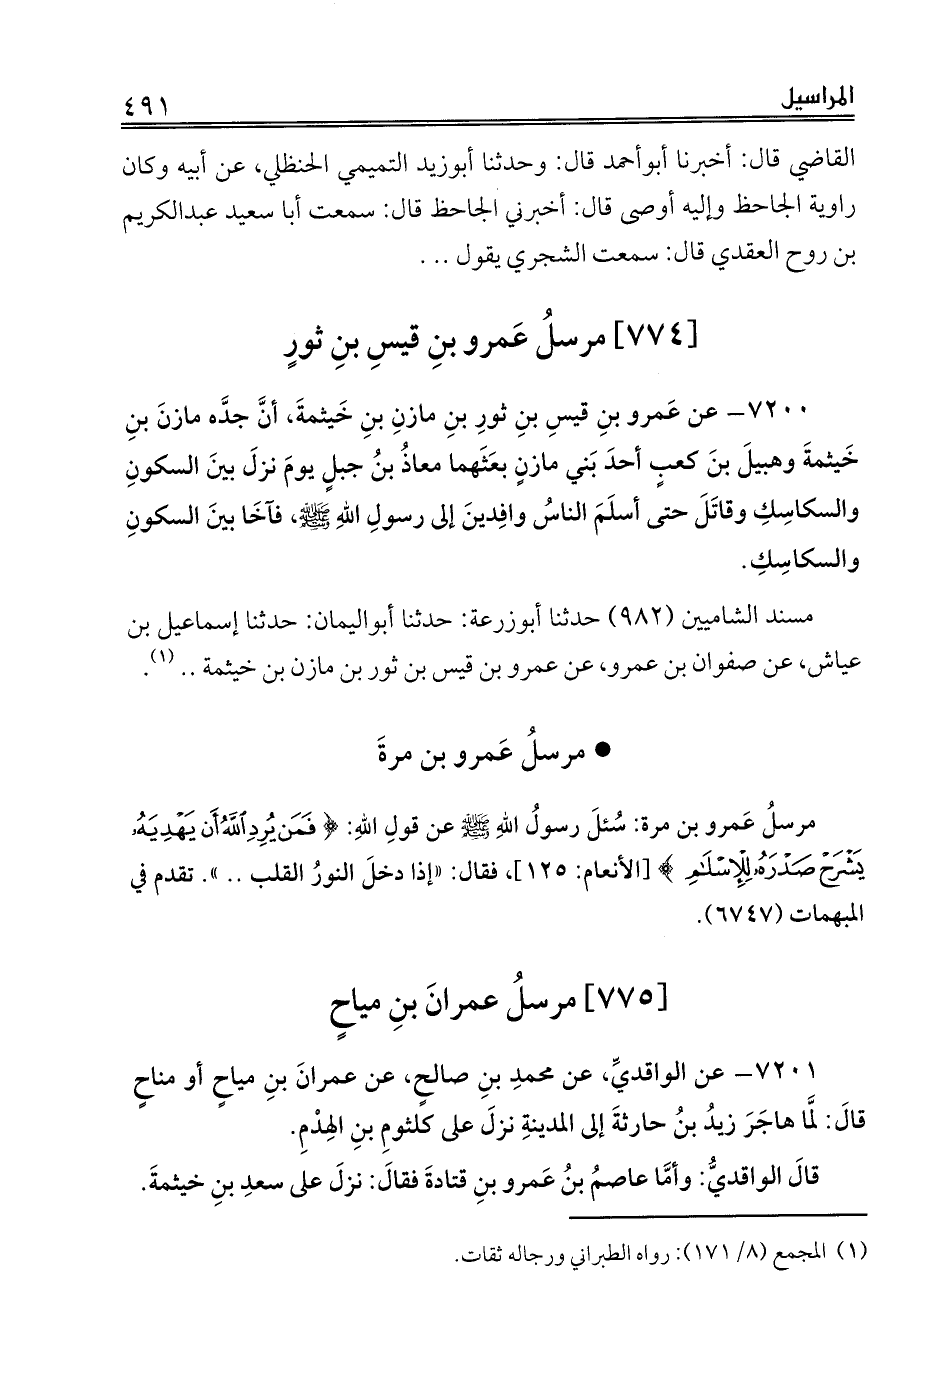 المراسيل
٤٩١
القاضي قال: أخبرنا أبوأحمد قال: وحدثنا أبوزيد التميمي الحنظلي، عن أبيه وكان
راوية الجاحظ وإليه أوصى قال: أخبرني الجاحظ قال: سمعت أبا سعيد عبدالكريم
بن روح العقدي قال: سمعت الشجري يقول ...
[٧٧٤] مرسلُ عَمرو بنِ قيسِ بنِ ثورٍ
٧٢٠٠- عن عَمرو بنِ قيسِ بنِ ثورِ بنِ مازنِ بنِ خَيثمةَ، أنَّ جدَّه مازنَ بنِ
خَيثمةَ وهبيلَ بنَ كعبٍ أحدَ بَني مازنٍ بعَثَهما معاذُ بنُ جبلٍ يومَ نزلَ بينَ السكونِ
والسكاسِكِ وقاتَلَ حتى أسلَمَ الناسُ وافِدينَ إلى رسولِ اللهِ ﷺ، فآخَا بينَ السكونِ
والسكاسِكِ.
مسند الشاميين (٩٨٢) حدثنا أبوزرعة: حدثنا أبواليمان: حدثنا إسماعيل بن
عياش، عن صفوان بن عمرو، عن عمرو بن قيس بن ثور بن مازن بن خيثمة .. (١).
● مرسلُ عَمرو بن مرةَ
مرسلُ عَمرو بن مرة: سُئلَ رسولُ اللهِ ﷺ عن قولِ اللهِ: ﴿ فَمَن يُرِدِ ٱللَّهُ أَن يَهْدِيَهُۥ
يَشْرَحْ صَدْرَهُۥ لِلْإِسْلَٰمِ ﴾ [الأنعام: ١٢٥]، فقال: «إذا دخلَ النورُ القلب ..». تقدم في
المبهمات (٦٧٤٧).
[٧٧٥] مرسلُ عمرانَ بنِ مياحٍ
٧٢٠١- عن الواقديِّ، عن محمدِ بنِ صالحٍ، عن عمرانَ بنِ مياحٍ أو مناحٍ
قالَ: لمَّا هاجَرَ زيدُ بنُ حارثةَ إلى المدينةِ نزلَ على كلثومِ بنِ الهِدْمِ.
قالَ الواقديُّ: وأمَّا عاصمُ بنُ عَمرو بنِ قتادةَ فقالَ: نزلَ على سعدِ بنِ خيثمةَ.
(١) المجمع (٨/ ١٧١): رواه الطبراني ورجاله ثقات.